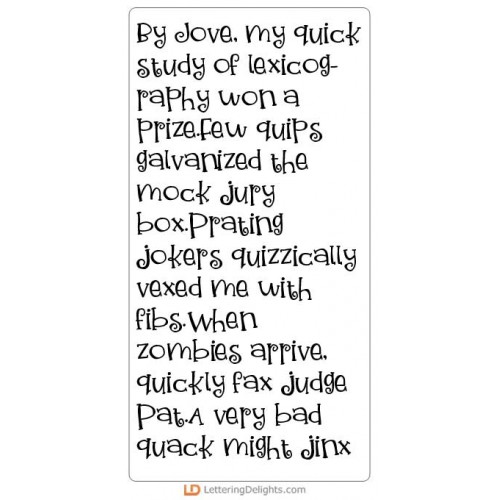 By Jove, my quick
study of lexicog-
raphy won a
prize.Few quips
galvanized the
mock jury
box.Prating
jokers quizzically
vexed me with
fibs.When
zombies arrive,
quickly fax judge
Pat.A very bad
quack might jinx
LD LetteringDelights.com